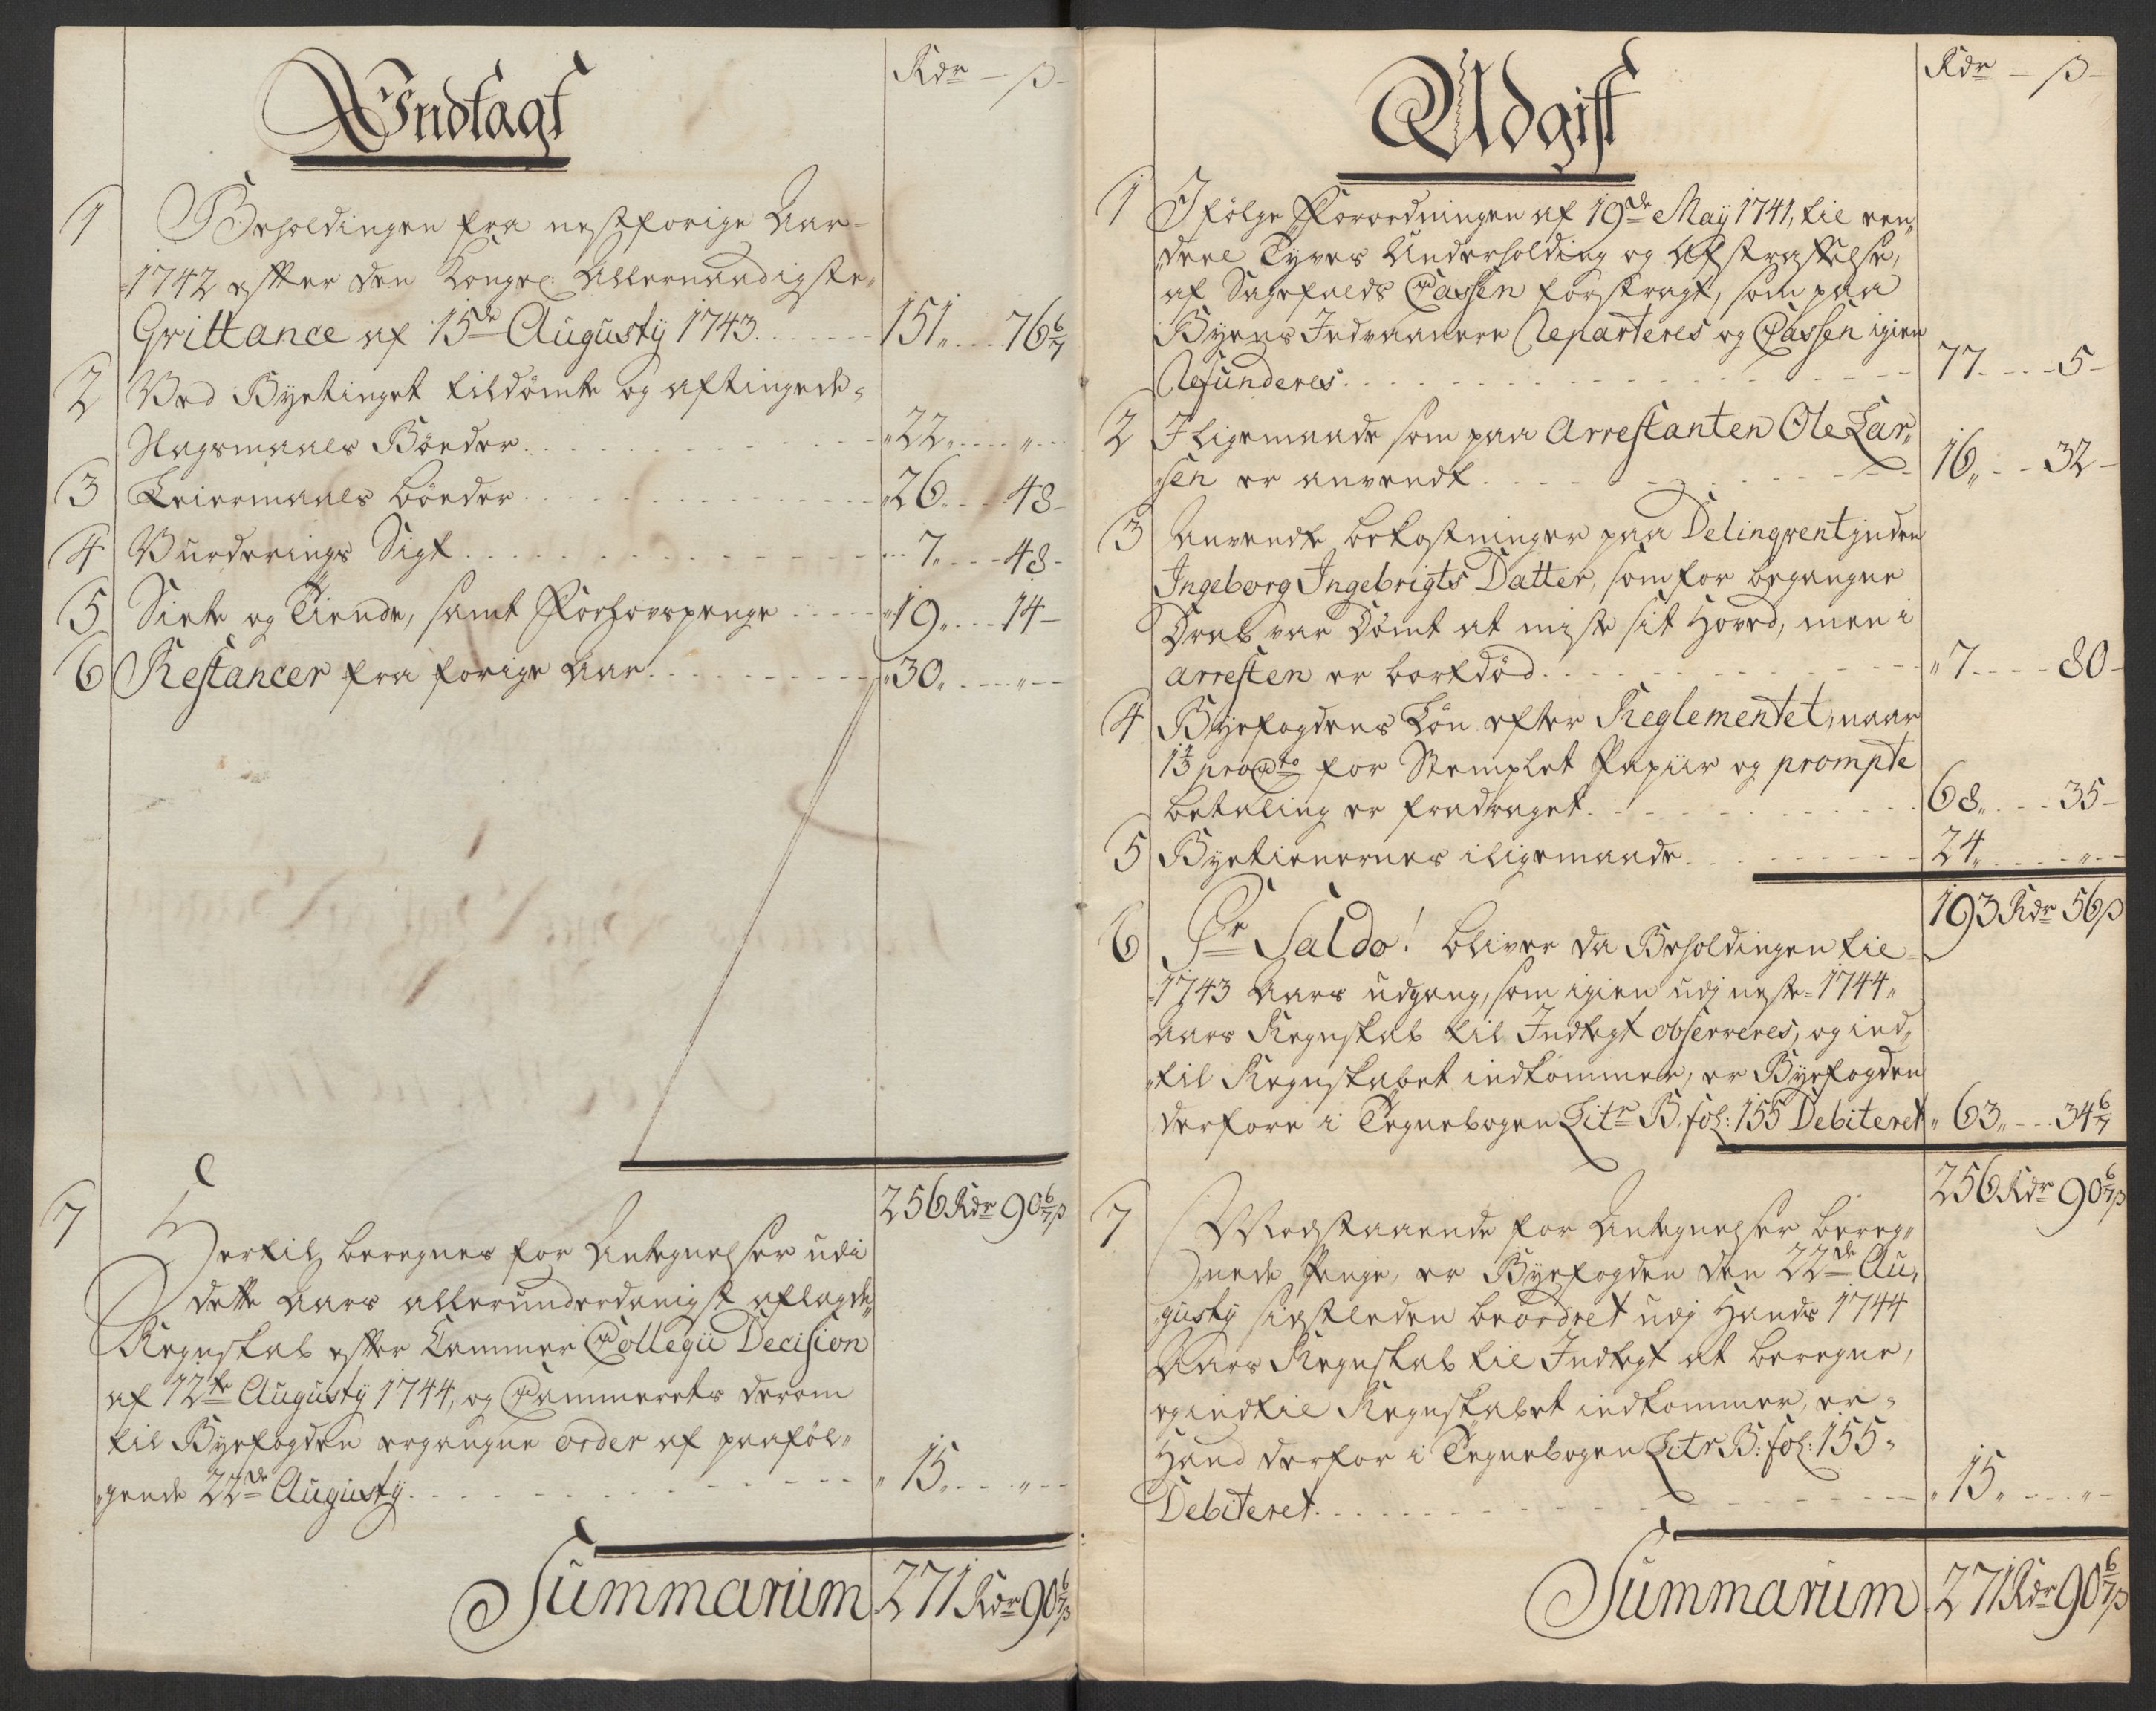 Indtagt
Rdr – ß –
1 Beholdingen fra nestforige Aar
1742 effter den Kongel: Allernaadigste
Qvittance af 15de Augustij 1743 . . . 151 „ . . 76 6/7
2 Ved Byetinget tildömte og aftingede
Slagsmaals Böeder . . . „ 22 „ . . „ . .
3 Leiermaals böeder . . . „ 26 . . 48 –
4 Vurderings Sigt . . . 7 „ . . 48 –
5 Siette og Tiende, samt Forlovspenge . . . „ 19 „ . . 14 –
6 Restancer fra forige Aar . . . „ 30 „ . . „ –
256 Rdr 90 6/7 ß
7 Hertil beregnes for Antegnelser udi
dette Aars allerunderdanigst aflagde
Regnskab effter Cammer Collegii Decision
af 12te Augustij 1744, og Cammerets derom
til Byefogden ergangne order af paaföl„
„gende 22de Augustij . . . „ 15 „ . . „ –
Summarum 271 Rdr 90 6/7 ß
Udgift
Rdr – ß –
1 Ifölge Forordningen af 19de Maij 1741, til een„
„deel Tyves Underholding og Afstraffelse,
af Sagefalds Cassen forstragt, som paa
Byens Indvaanere Reparteres og Cassen igien
Refunderes . . . 77 . . 5 –
2 I ligemaade som paa Arrestanten Ole Lar„
„sen er anvendt . . . 16 „ . . 32 –
3 Anvendte bekostninger paa Delinqventinden
Ingeborg Ingebrigts Datter, som for begangne
Drab var Dömt at miste sit Hoved, men i
arresten er bortdöd . . . „ 7 . . 80 –
4 Byefogdens Lön efter Reglementet, naar
1 1/3 pro Cto for Stemplet Papiir og prompte
betaling er fradraget . . . 68 „ . . 35 –
5 Byetienernes iligemaade . . . 24 „ . . „ –
193 Rdr 56 ß
6 Pr Saldo! bliver da Beholdingen til
1743 Aars udgang, som igien udj neste 1744
aars Regnskab til Indtegt observeres, og ind„
„til Regnskabet indkommer, er Byefogden
derfore i Tegnebogen Litr B. fol: 155 Debiteret „ 63 „ . . 34 6/7
256 Rdr 90 6/7 ß
7 Modstaaende for Antegnelser bereg„
„nede Penge, er Byefogden den 22de Au„
„gustij sidstleden beordret udj Hands 1744
Aars Regnskab til Indtegt at beregne,
og indtil Regnskabet indkommer, er
Hand derfor i Tegnebogen Litr B: fol: 155
Debiteret . . . „ 15 „ . . „ –
Summarum 271 Rdr 90 6/7 ß